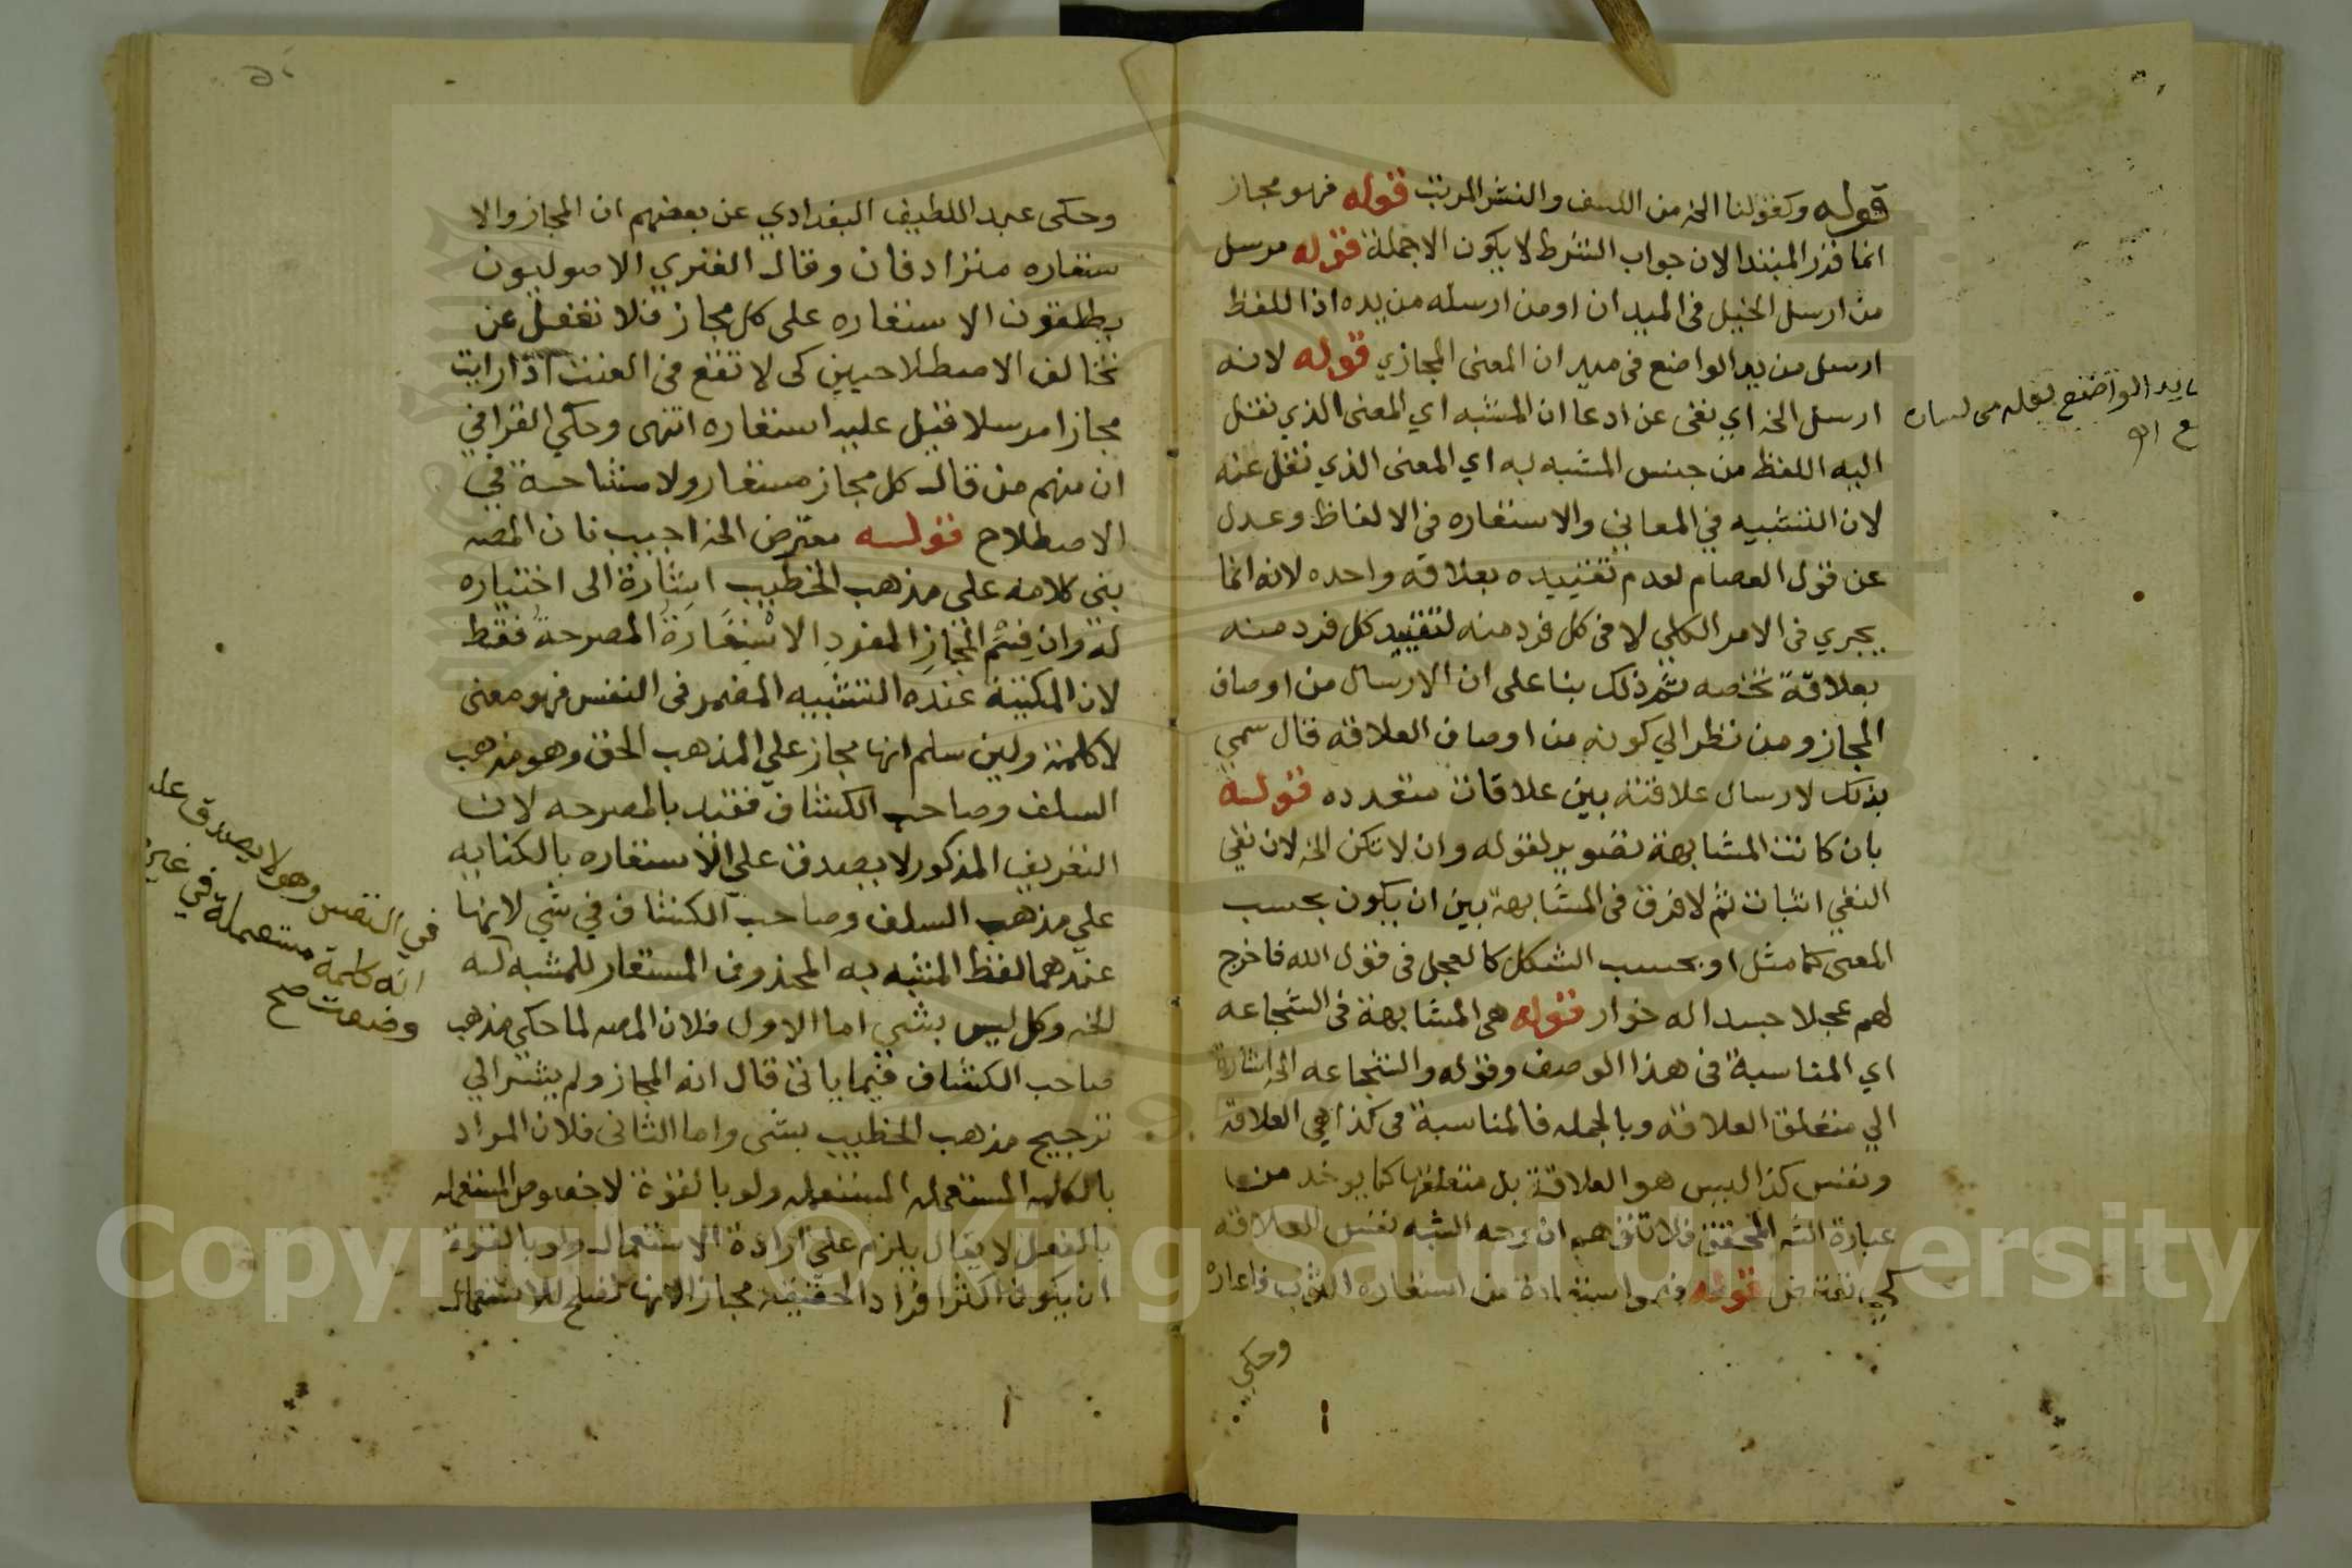 قوله وكقولنا الخ من اللف والنشر المرتب قوله فهو مجاز
انما قدر المبتدا لان جواب الشرط لا يكون الا جملة قوله مرسل
من ارسل الخيل في الميدان او من ارسله من يده اذ اللفظ
ارسل من يد الواضع في ميدان المعنى المجازي قوله لانه
ارسل الخ اي نفى عن ادعا ان المشبه اي المعنى الذي نقل
اليه اللفظ من جنس المشبه به اي المعنى الذي نقل عنه
لان التشبيه في المعاني والاستعاره في الالفاظ وعدل
عن قول العصام لعدم تقييده بعلاقه واحده لانه انما
يجري في الامر الكلي لا في كل فرد منه لتقييد كل فرد منه
بعلاقة تخصه ثم ذلك بنا على ان الارسال من اوصاف
المجاز ومن نظر الي كونه من اوصاف العلاقه قال سمي
بذلك لارسال علاقته بين علاقات متعدده قوله
بان كانت المشابهة تصوير لقوله وان لا تكن الخ لان نفي
النفي اثبات ثم لا فرق في المشابهة بين ان يكون بحسب
المعنى كما مثل او بحسب الشكل كالعجل في قول الله فاخرج
لهم عجلا جسدا له خوار قوله هي المشابهة في الشجاعه
اي المناسبة في هذا الوصف وقوله والشجاعه الخ اشارة
الي متعلق العلاقه وبالجمله فالمناسبة في كذا هي العلاقة
ونفس كذا ليس هو العلاقة بل متعلقها كما يوخذ من
عبارة الشه المحقق فلا تتوهم ان وجه الشبه نفس العلاقه
قوله فهو استعارة من استعاره الثوب فاعاره
وحكي
يد الواضع
وحكى عبد اللطيف البغدادي عن بعضهم ان المجاز والا
ستعاره مترادفان وقال الفنري الاصوليون
يطلقون الاستعاره على كل مجاز فلا تغفل عن
تخالف الاصطلاحيين كى لا تقع في العنت اذا رايت
مجازا مرسلا قيل عليه استعاره انتهى وحكي القرافي
ان منهم من قال كل مجاز مستعار ولا مشاحة في
الاصطلاح قوله معترض الخ اجيب بان المصه
بنى كلامه على مذهب الخطيب اشارة الى اختياره
له وان قسم المجاز المفرد الاستعارة المصرحة فقط
لان المكنية عنده التشبيه المضمر في النفس فهو معنى
لا كلمة ولين سلم انها مجاز على المذهب الحق وهو مذهب
السلف وصاحب الكشاف فقيد بالمصرحه لان
التعريف المذكور لا يصدق على الاستعاره بالكنايه
على مذهب السلف وصاحب الكشاف في شي لانها
عندهما لفظ المشبه به المحذوف المستعار للمشبه
الخ وكل ليس بشي اما الاول فلان المصه لما حكي مذهب
صاحب الكشاف فيما ياتي قال انه المجاز ولم يشر الي
ترجيح مذهب الخطيب بشي واما الثاني فلان المراد
بالكلمه المستعمله المستعمله ولو بالقوة لا خصوص المستعمله
بالفعل لا يقال يلزم على ارادة الاستعمال ولو بالقوة
ان يكون اكثر افراد الحقيقة مجازا لانها تصلح للاستعمال
في النفس وهو لا يصدق عليه
انه كلمة مستعملة في غير
وضعت صح